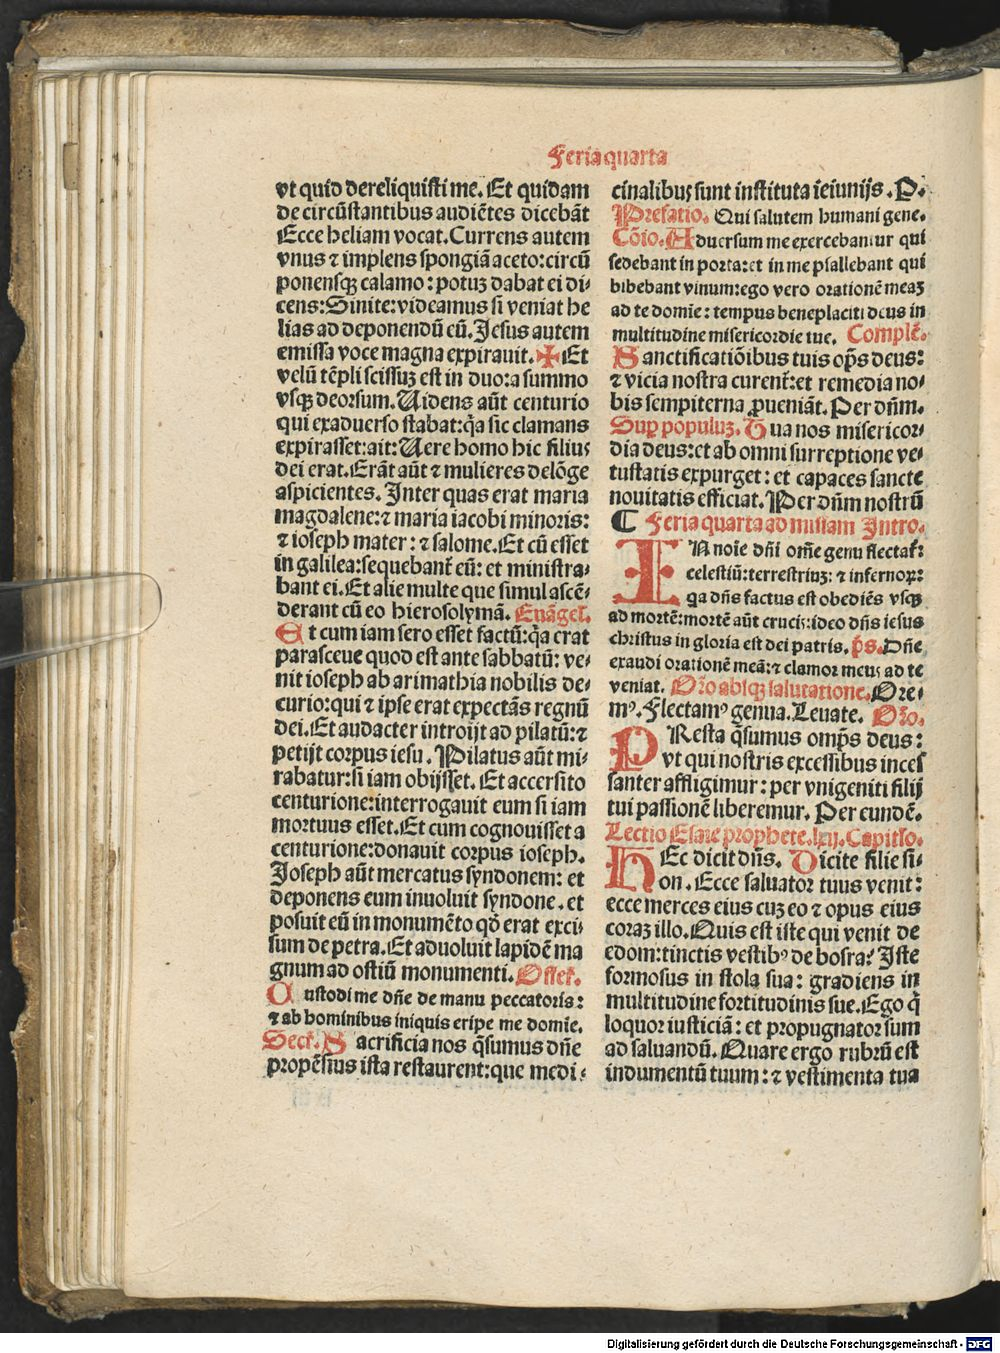 Feria quarta
vt quid dereliquisti me. Et quidam
de circūstantibus audiētes dicebāt
Ecce heliam vocat. Currens autem
vnus ⁊ implens spongiā aceto: circū
ponensqꝫ calamo: potuꝫ dabat ei di⸗
cens: Sinite: videamus si veniat he
lias ad deponendū eū. Jesus autem
emissa voce magna expirauit. ✠ Et
velū tēpli scissuꝫ est in duo: a summo
vsqꝫ deorsum. Uidens aūt centurio
qui exaduerso stabat: q̄a sic clamans
expirasset: ait: Uere homo hic filius
dei erat. Erāt aūt ⁊ mulieres delōge
aspicientes. Inter quas erat maria
magdalene: ⁊ maria iacobi minoris:
⁊ ioseph mater: ⁊ salome. Et cū esset
in galilea: sequebanť eū: et ministra⸗
bant ei. Et alie multe que simul ascē⸗
derant cū eo hierosolymā. Euāgel.
Et cum iam sero esset factū: q̄a erat
parasceue quod est ante sabbatū: ve⸗
nit ioseph ab arimathia nobilis de⸗
curio: qui ⁊ ipse erat expectās regnū
dei. Et audacter introijt ad pilatū: ⁊
petijt corpus iesu. Pilatus aūt mi⸗
rabatur: si iam obijsset. Et accersito
centurione: interrogauit eum si iam
mortuus esset. Et cum cognouisset a
centurione: donauit corpus ioseph.
Joseph aūt mercatus syndonem: et
deponens eum inuoluit syndone. et
posuit eū in monumēto qd̄ erat exci⸗
sum de petra. Et aduoluit lapidē ma
gnum ad ostiū monumenti. Offer̄.
Custodi me dn̄e de manu peccatoris:
⁊ ab hominibus iniquis eripe me domie.
Secr̄. Sacrificia nos q̄sumus dn̄e
propēsius ista restaurent: que medi⸗
cinalibus sunt instituta ieiunijs. P.
Prefatio. Qui salutem humani gene.
Cōio. Aduersum me exercebantur qui
sedebant in porta: et in me psallebant qui
bibebant vinum: ego vero orationē meaꝫ
ad te domie: tempus beneplaciti deus in
multitudine misericordie tue. Complē.
Sanctificatiōibus tuis op̄s deus:
⁊ vicia nostra curenť: et remedia no⸗
bis sempiterna ꝓueniāt. Per dn̄m.
Suꝑ populuꝫ. Tua nos misericor⸗
dia deus: et ab omni surreptione ve⸗
tustatis expurget: et capaces sancte
nouitatis efficiat. Per dn̄m nostrū
¶ Feria quarta ad missam Intro.
IN noie dn̄i om̄e genu flectať:
celestiū: terrestriuꝫ: ⁊ infernoꝝ:
q̄a dn̄s factus est obediēs vsqꝫ
ad mortē: mortē aūt crucis: ideo dn̄s iesus
christus in gloria est dei patris. p̄s. Dn̄e
exaudi orationē meā: ⁊ clamor meus ad te
veniat. Or̄o absqꝫ salutatione. Ore⸗
mꝰ. Flectamꝰ genua. Leuate. Or̄o.
PResta q̄sumus omp̄s deus:
vt qui nostris excessibus inces
santer affligimur: per vnigeniti filij
tui passionē liberemur. Per eundē.
Lectio Esaie prophete. lxij. Capitlo.
HEc dicit dn̄s. Dicite filie si⸗
on. Ecce saluator tuus venit:
ecce merces eius cuꝫ eo ⁊ opus eius
coraꝫ illo. Quis est iste qui venit de
edom: tinctis vestibꝰ de bosra? Iste
formosus in stola sua: gradiens in
multitudine fortitudinis sue. Ego q̄
loquor iusticiā: et propugnator sum
ad saluandū. Quare ergo rubrū est
indumentū tuum: ⁊ vestimenta tua
Digitalisierung gefördert durch die Deutsche Forschungsgemeinschaft - DFG